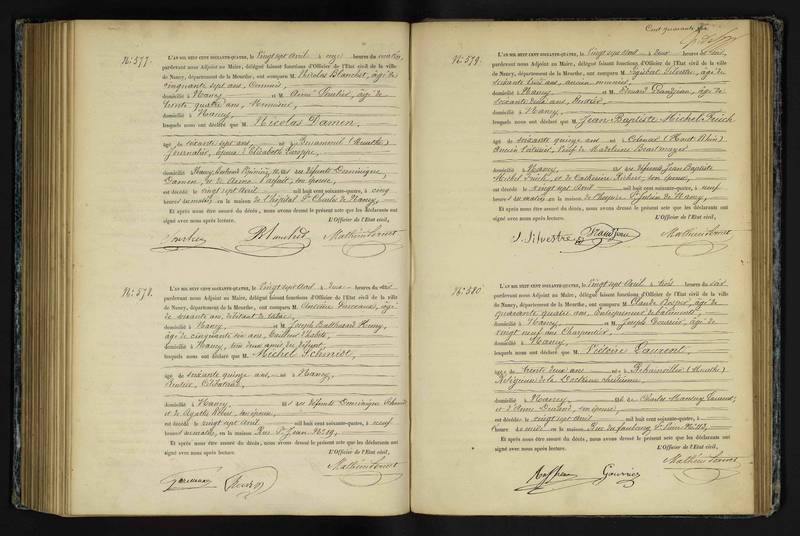 N° 577.
L'AN MIL HUIT CENT SOIXANTE-QUATRE, le vingt sept avril à onze heures du matin,
pardevant nous Adjoint au Maire, délégué faisant fonctions d'Officier de l'Etat civil de la ville
de Nancy, département de la Meurthe, ont comparu M. Nicolas Blanchet, âgé de
cinquante sept ans,
domicilié à Nancy et M. Aimé âgé de
trente quatre ans,
domicilié à Nancy,
lesquels nous ont déclaré que M. Nicolas Damen,
âgé de soixante sept ans né à (Meurthe)
Journalier, époux d'Elisabeth
domicilié à Nancy, fils des défunts Dominique
Damen, et de son épouse,
est décédé le vingt sept avril mil huit cent soixante-quatre, à cinq
heures du matin, en la maison de l'hôpital St Charles de Nancy,
Et après nous être assuré du décès, nous avons dressé le présent acte que les déclarants ont
signé avec nous après lecture. L'Officier de l'Etat civil,
Blanchet
N° 578.
L'AN MIL HUIT CENT SOIXANTE-QUATRE, le vingt sept avril à deux heures du soir
pardevant nous Adjoint au Maire, délégué faisant fonctions d'Officier de l'Etat civil de la ville
de Nancy, département de la Meurthe, ont comparu M. Antoine âgé
de soixante ans, débitant de tabac,
domicilié à Nancy, et M. Joseph Balthazard Henry,
âgé de cinquante six ans, tailleur d'habits,
domicilié à Nancy, tous deux amis du défunt,
lesquels nous ont déclaré que M. Michel Schmidt,
âgé de soixante quinze ans, né à Nancy,
Rentier, célibataire,
domicilié à Nancy fils des défunts Dominique Schmidt
et de Agathe son épouse,
est décédé le vingt sept avril mil huit cent soixante-quatre, à neuf
heures du matin, en la maison Rue St Jean N° 19,
Et après nous être assuré du décès, nous avons dressé le présent acte que les déclarants ont
signé avec nous après lecture. L'Officier de l'Etat civil,
Cent quarante
N° 579.
L'AN MIL HUIT CENT SOIXANTE-QUATRE, le vingt sept avril à deux heures du soir,
pardevant nous Adjoint au Maire, délégué faisant fonctions d'Officier de l'Etat civil de la ville
de Nancy, département de la Meurthe, ont comparu M. Silvestre, âgé de
soixante trois ans, ancien
domicilié à Nancy et M. Edouard Grandjean, âgé de
soixante deux ans, Rentier,
domicilié à Nancy,
lesquels nous ont déclaré que M. Jean Baptiste Michel
âgé de soixante quinze ans né à Colmar (Haut Rhin)
ancien veuf de Madeleine
domicilié à Nancy, fils des défunts Jean Baptiste
Michel et de Catherine son épouse,
est décédé le vingt sept avril mil huit cent soixante-quatre, à neuf
heures du matin, en la maison de l'hospice St Julien de Nancy,
Et après nous être assuré du décès, nous avons dressé le présent acte que les déclarants ont
signé avec nous après lecture. L'Officier de l'Etat civil,
J. Silvestre Grandjean
N° 580.
L'AN MIL HUIT CENT SOIXANTE-QUATRE, le vingt sept avril à trois heures du soir
pardevant nous Adjoint au Maire, délégué faisant fonctions d'Officier de l'Etat civil de la ville
de Nancy, département de la Meurthe, ont comparu M. Claude âgé de
quarante quatre ans, Entrepreneur de bâtiments,
domicilié à Nancy et M. Joseph âgé de
vingt neuf ans, Charpentier,
domicilié à Nancy,
lesquels nous ont déclaré que M. Victoire Laurent,
âgée de trente deux ans née à (Meurthe)
Religieuse de la Doctrine chrétienne,
domiciliée à Nancy fille de Charles Laurent,
et d'Anne son épouse,
est décédée le vingt sept avril mil huit cent soixante-quatre, à
heure de midi en la maison Rue du faubourg St Pierre
Et après nous être assuré du décès, nous avons dressé le présent acte que les déclarants ont
signé avec nous après lecture. L'Officier de l'Etat civil,